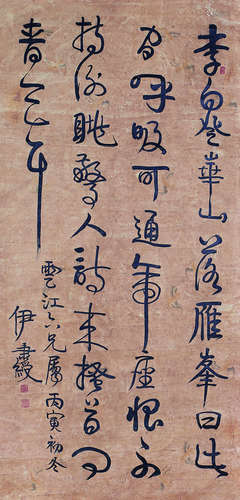 李白登華山落雁峯曰此
間呼吸可通帝座恨不
持謝眺驚人詩來搔首問
青天耳
雲江六兄屬 丙寅初冬
伊秉綬